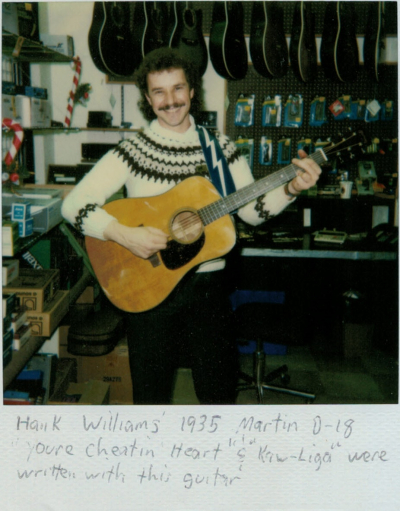 Hank Williams' 1935 Martin D-18
"Youre Cheatin Heart" & "Kaw-Liga" were
written with this guitar